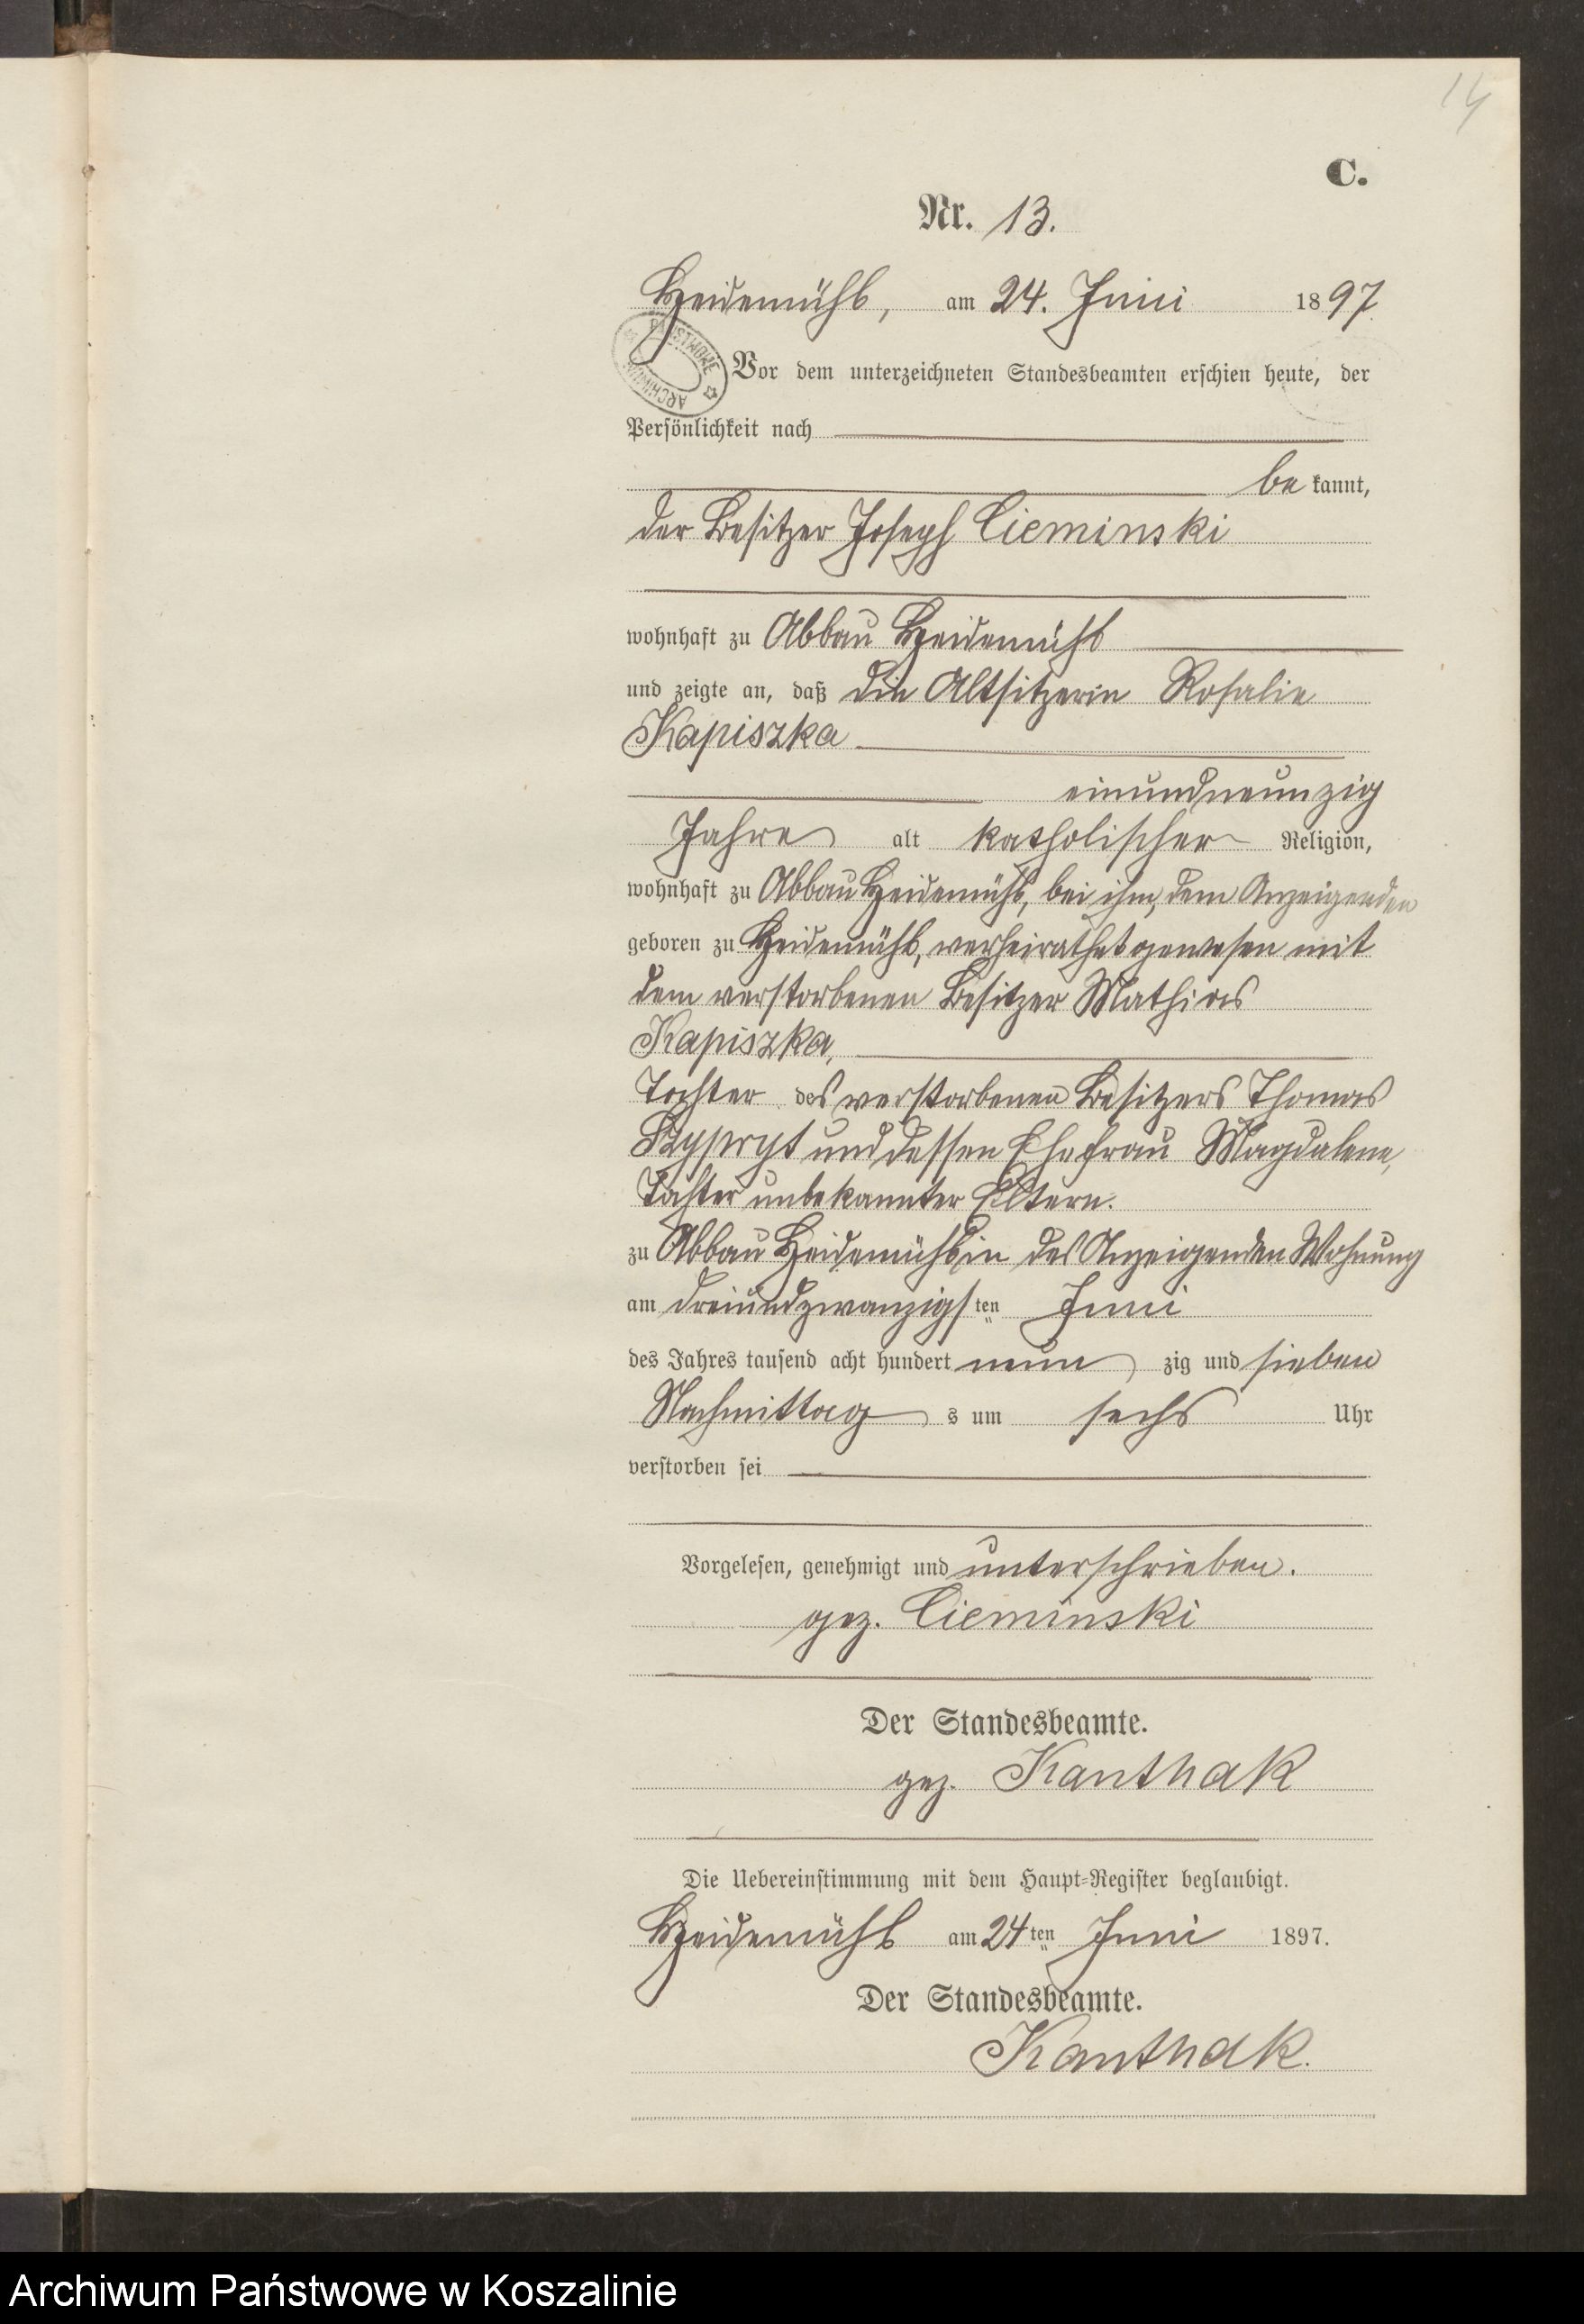 14
C.
Nr. 13.
Heidemühl, am 24. Juni 1897
ARCHIWUM PAŃSTWOWE
Vor dem unterzeichneten Standesbeamten erschien heute, der
Persönlichkeit nach
be kannt,
der Besitzer Joseph Cieminski
wohnhaft zu Abbau Heidemühl
und zeigte an, daß die Altsitzerin Rosalie
Kapiszka
einundneunzig
Jahre alt katholischer Religion,
wohnhaft zu Abbau Heidemühl, bei ihm, dem Anzeigenden
geboren zu Heidemühl, verheirathet gewesen mit
dem verstorbenen Besitzer Mathias
Kapiszka,
Tochter des verstorbenen Besitzers Thomas
und dessen Ehefrau Magdalene,
Tochter unbekannter Eltern.
zu Abbau Heidemühl in des Anzeigenden Wohnung
am dreiundzwanzigsten Juni
des Jahres tausend acht hundert neun zig und sieben
Nachmittag s um sechs Uhr
verstorben sei
Vorgelesen, genehmigt und unterschrieben.
gez. Cieminski
Der Standesbeamte.
gez. Kanthak
Die Uebereinstimmung mit dem Haupt-Register beglaubigt.
Heidemühl am 24ten Juni 1897.
Der Standesbeamte.
Kanthak.
Archiwum Państwowe w Koszalinie